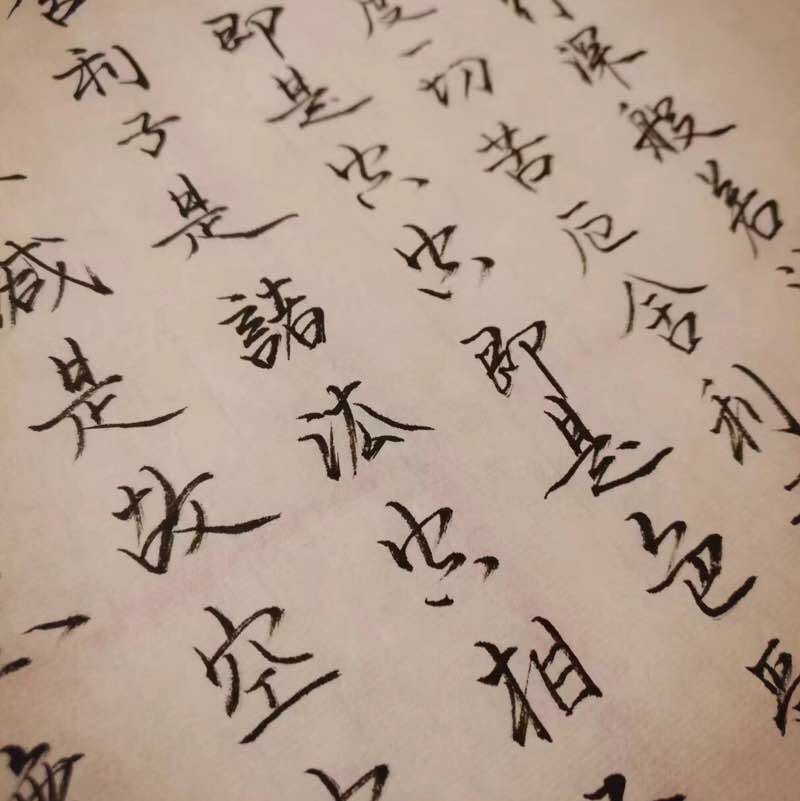 深般若
度一切苦厄舍利
即是空空即是色
舍利子是諸法空相
減是故空